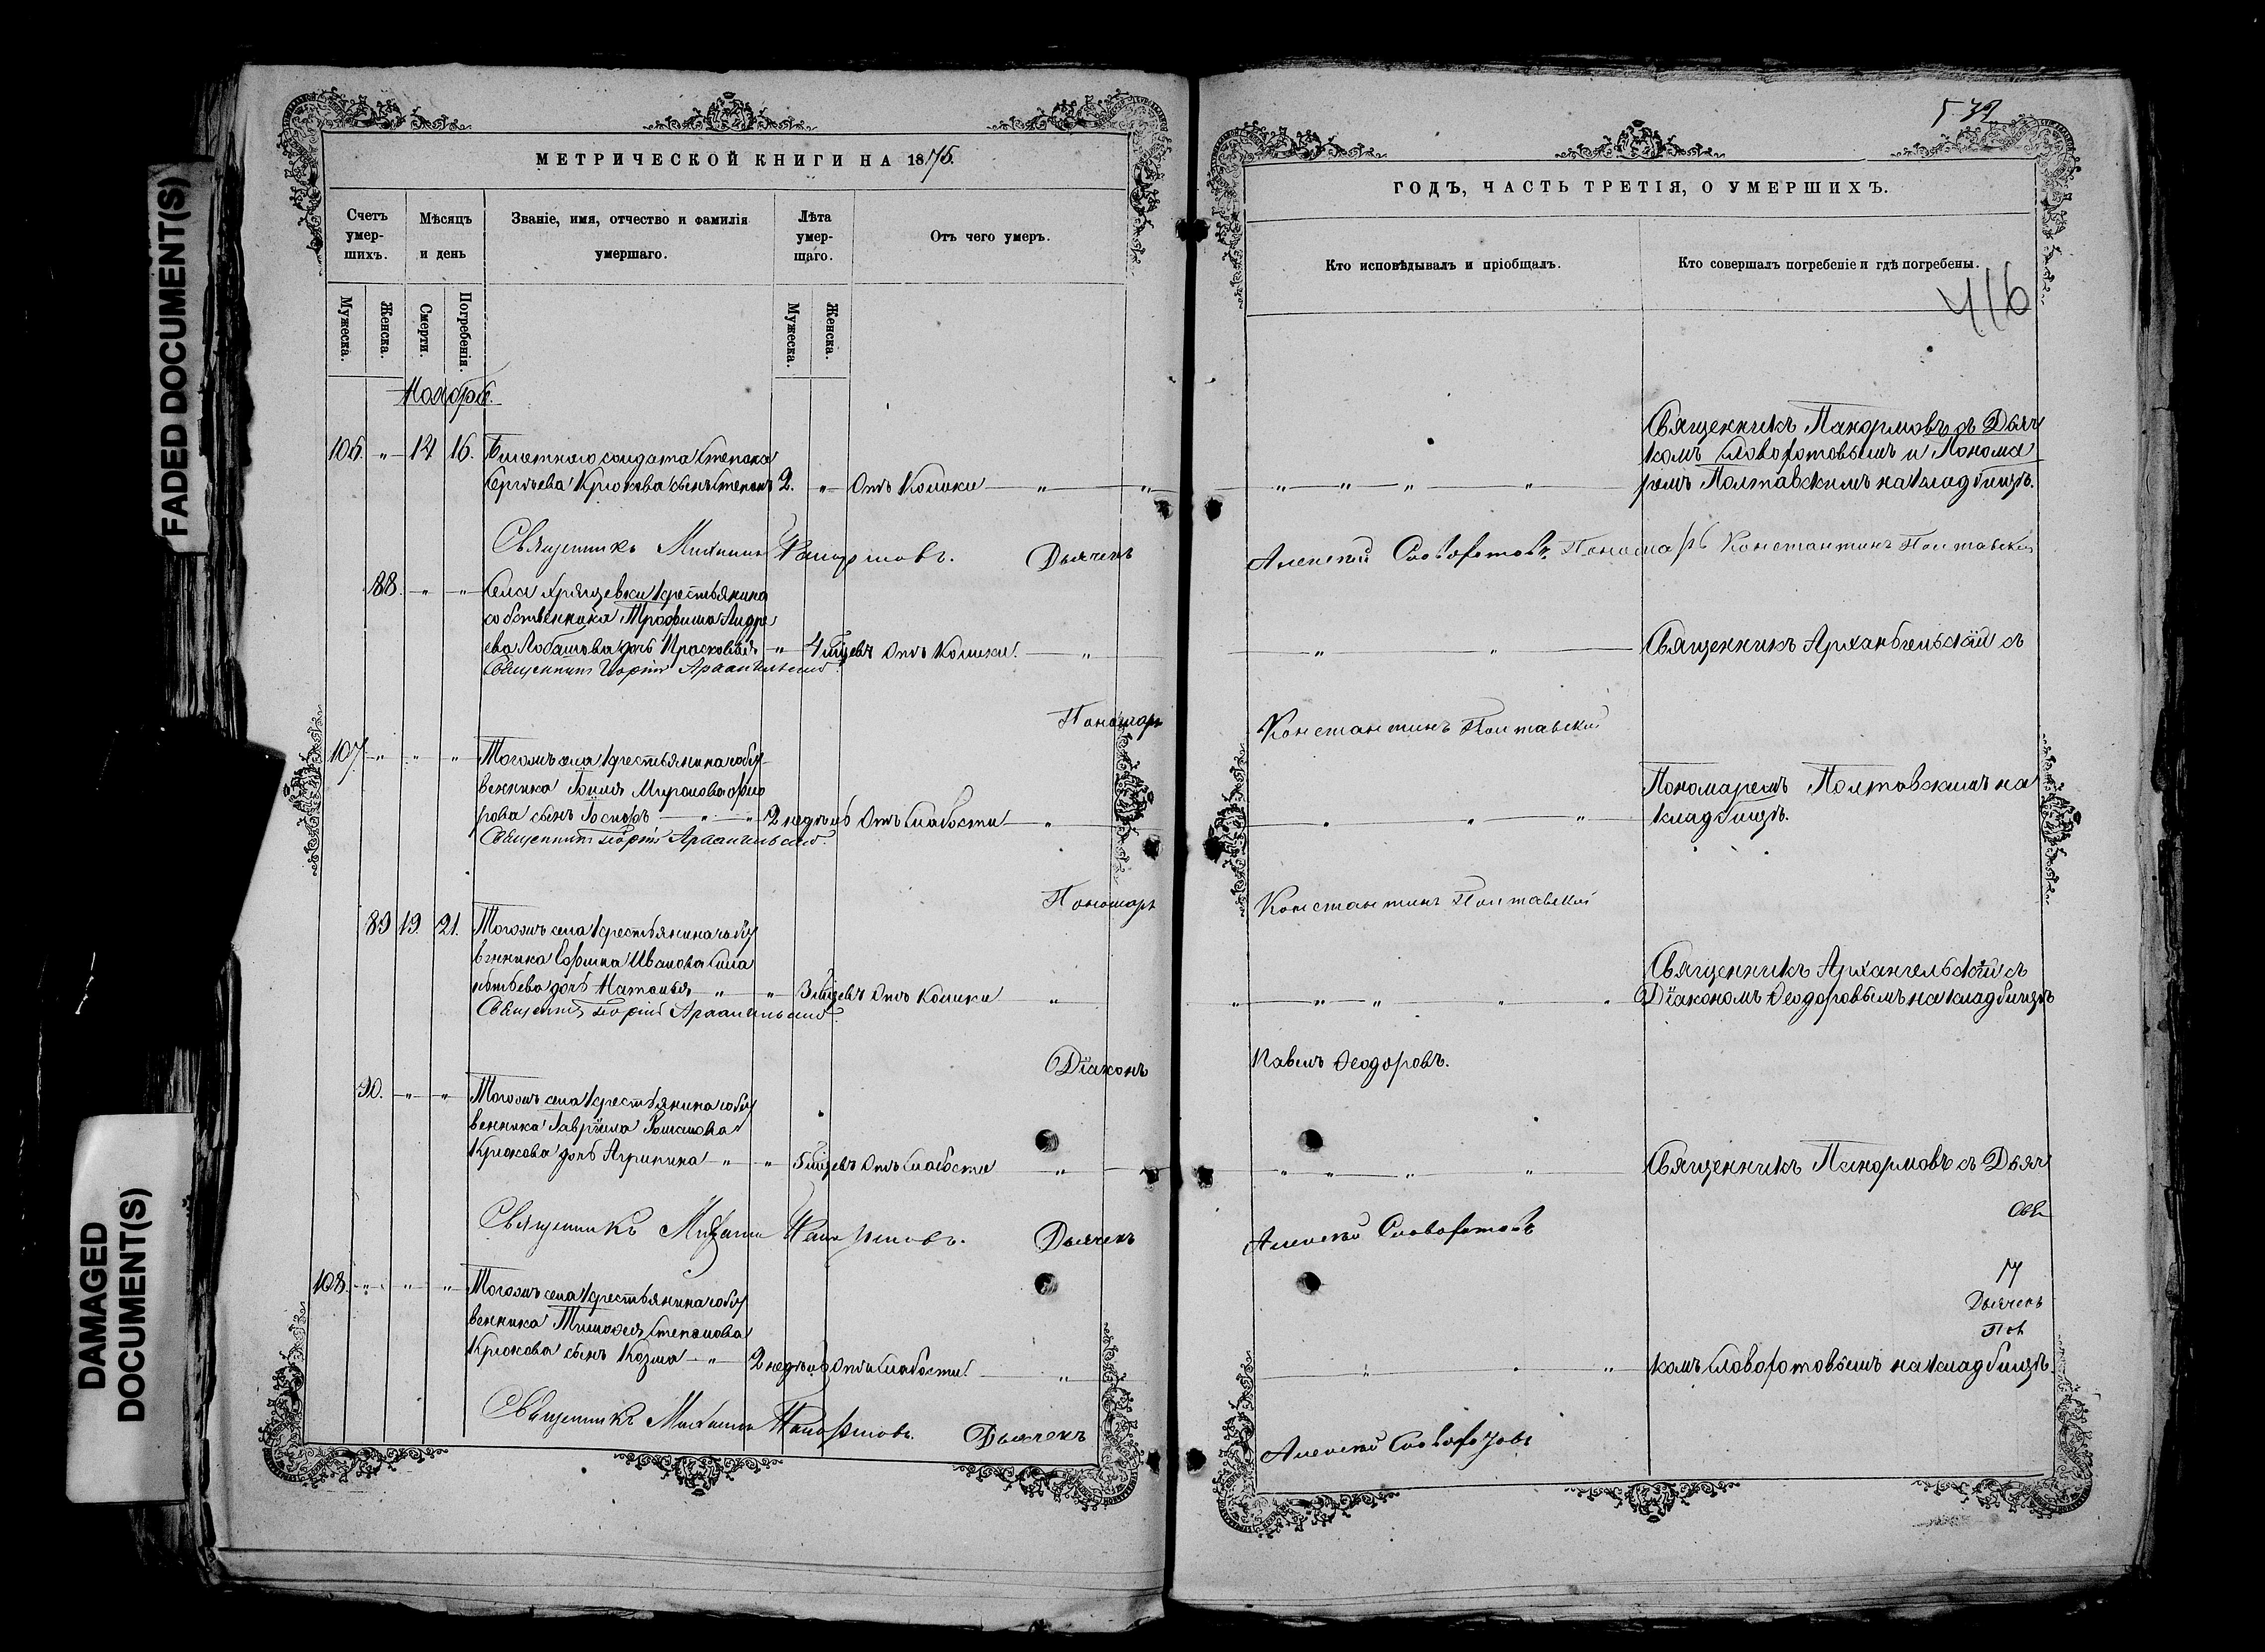 FADED DOCUMENT(S)
DAMAGED
DOCUMENT(S)
МЕТРИЧЕСКОЙ КНИГИ НА 1875.
Счетъ
умер-
шихъ.
Мѣсяцъ
и день
Званіе, имя, отчество и фамилія
умершаго.
Лѣта
умер-
шаго.
Отъ чего умеръ.
Мужеска.
Женска.
Смерти.
Погребенія.
Мужеска.
Женска.
Ноябрь.
106. „ 14 16. Билетнаго солдата Степана
Сергѣева Крюкова сынъ Степанъ 2. „ Отъ Колики „ „
Священникъ Михаилъ Панормовъ. Дьячекъ
88. „ „ Села Хрящевки крестьянина
собственника Трофима Андре
ева Лобашова дочь Прасковья „ 4 мѣсцевъ Отъ Колики. „
Священникъ Георгій Архангельскій.
Пономарь
107 „ „ „ Тогожъ села крестьянина собст
венника Іоиля Миронова
рова сынъ „ „ 2 недѣль Отъ Слабости „
Священникъ Георгій Архангельскій.
Пономарь
89 19. 21. Тогожъ села крестьянина собст
венника Ефима Иванова
дочь Наталья „ „ 3 мѣсцевъ Отъ Колики „
Священникъ Георгій Архангельскій.
Діаконъ
90. „ „ Тогожъ села крестьянина собст
венника Гавріила Романова
Крюкова дочь Агрипина „ „ 5 мѣсцевъ Отъ Слабости „
Священникъ Михаилъ Панормовъ. Дьячекъ
108. „ „ „ Тогожъ села крестьянина собст
венника Тимофея Степанова
Крюкова сынъ Козма „ 2 недѣль Отъ Слабости „
Священникъ Михаилъ Панормовъ. Дьячекъ
572
ГОДЪ, ЧАСТЬ ТРЕТІЯ, О УМЕРШИХЪ.
Кто исповѣдывалъ и пріобщалъ.
Кто совершалъ погребеніе и гдѣ погребены.
416
Священникъ Панормовъ съ Дьяч
комъ Словохотовымъ и Понома
ремъ Полтавскимъ на кладбищѣ.
Алексѣй Словохотовъ. Пономарь Константинъ Полтавскій
Священникъ Архангельскій съ
Константинъ Полтавскій
Пономаремъ Полтавскимъ на
кладбищѣ.
Константинъ Полтавскій
Священникъ Архангельскій съ
Діакономъ Ѳеодоровымъ на кладбищѣ
Павелъ Ѳеодоровъ.
Священникъ Панормовъ съ Дьяч
Алексѣй Словохотовъ
Дьячекъ
комъ Словохотовымъ на кладбищѣ.
Алексѣй Словохотовъ